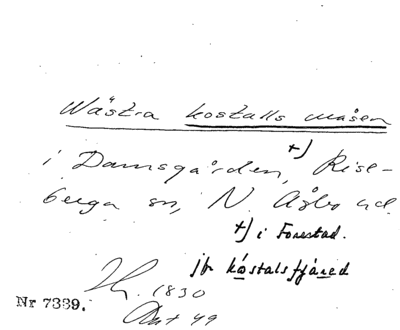 Wästra kostalls måsen
i Damsgården, +) Rise-
berga sn, N. Åsbo hd.
+) i Forestad.
jfr kostalsfjäred
1830
Akt 49
Nr 7339.